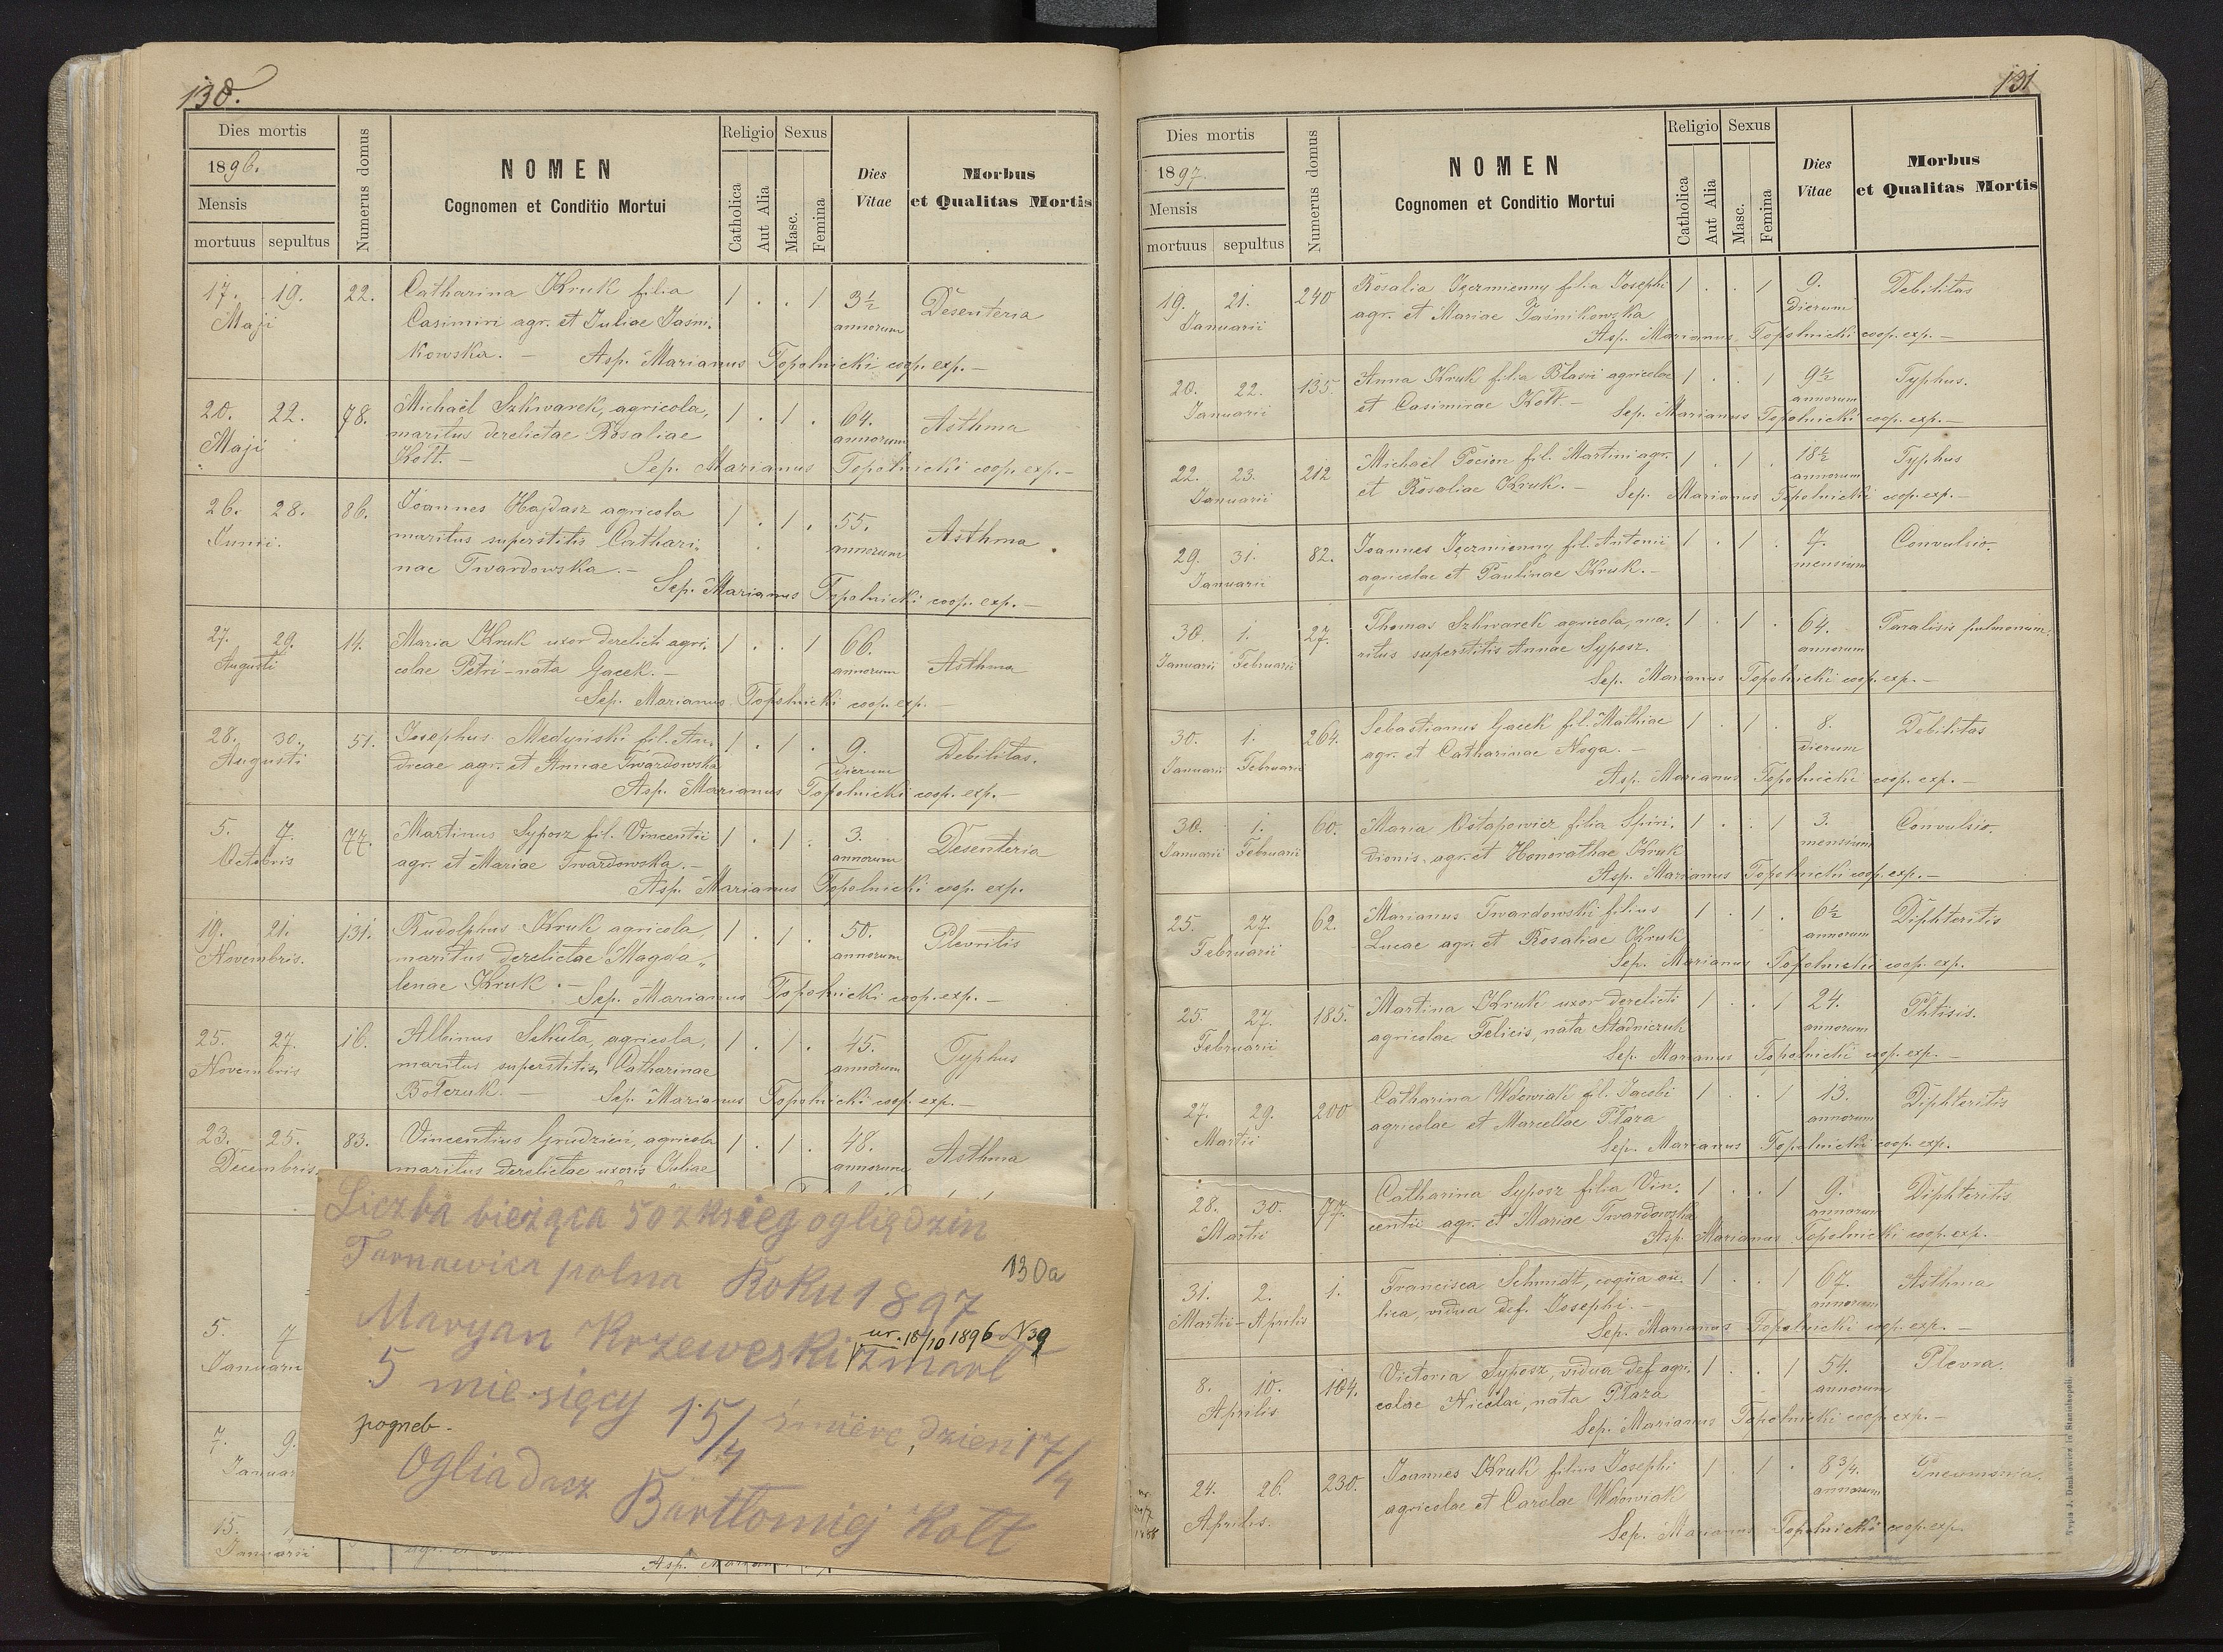 130.
Dies mortis
1896.
Mensis
mortuus sepultus
Numerus domus
NOMEN
Cognomen et Conditio Mortui
Religio Sexus
Catholica
Aut Alia
Masc.
Femina
Dies
Vitae
Morbus
et Qualitas Mortis
17. 19. 22. Catharina Kruk filia 1 . . 1 3½ Desenteria
Maji Casimiri agr. et Juliae Jaśni- annorum
kowska. — Asp. Marianus Topolnicki coop. exp. —
20. 22. 78. Michaël Szkwarek, agricola, 1 . 1 . 64. Asthma
Maji maritus derelictae Rosaliae annorum
Kott. — Sep. Marianus Topolnicki coop. exp. —
26. 28. 86. Joannes Hajdasz agricola 1 . 1 . 55. Asthma
Junii. maritus superstitis Cathari- annorum
nae Twardowska. —
Sep. Marianus Topolnicki coop. exp. —
27. 29. 14. Maria Kruk uxor derelicti agri- 1 . . 1 66. Asthma
Augusti colae Petri - nata Gacek. — annorum
Sep. Marianus Topolnicki coop. exp. —
28. 30. 51. Josephus Medyński fil. An- 1 . 1 . 9. Debilitas.
Augusti dreae agr. et Annae Twardowska dierum
Asp. Marianus Topolnicki coop. exp. —
5. 7. 77. Martinus Syposz fil. Vincentii 1 . 1 . 3. Desenteria
Octobris agr. et Mariae Twardowska. — annorum
Asp. Marianus Topolnicki coop. exp.
19. 21. 131. Rudolphus Kruk agricola, 1 . 1 . 50. Plevritis
Novembris. maritus derelictae Magda- annorum
lenae Kruk. — Sep. Marianus Topolnicki coop. exp. —
25. 27. 16. Albinus Sekuła, agricola, 1 . 1 . 45. Typhus
Novembris maritus superstitis Catharinae annorum
Bołczuk. — Sep. Marianus Topolnicki coop. exp. —
23. 25. 83. Vincentius Grudzień, agricola 1 . 1 . 48. Asthma
Decembris maritus derelictae uxoris Juliae annorum
5. 7
Januarii
7. 9.
Januar
15. 1
Januarii
Asp. Marian
Liczba bieżąca 50 z ksieg oglią dzin
Tarnawica polna Roku 1897
130a
Maryan Krzeweski zmarł
ur. 18/10 1896 N 39
5 miesięcy 15/4 śmierc, dzien 17/4
pogrzeb.
Oglia dasz Bartłomiej Kott
131
Dies mortis
1897.
Mensis
mortuus sepultus
Numerus domus
NOMEN
Cognomen et Conditio Mortui
Religio Sexus
Catholica
Aut Alia
Masc.
Femina
Dies
Vitae
Morbus
et Qualitas Mortis
19. 21. 240 Rosalia Jęczmienny filia Josephi 1 . . 1 9. Debilitas
Januarii agr. et Mariae Jaśnikowska dierum
Asp. Marianus Topolnicki coop. exp. —
20. 22. 135. Anna Kruk filia Blasii agricolae 1 . . 1 9½ Typhus.
Januarii et Casimirae Kott. — annorum
Sep. Marianus Topolnicki coop. exp. —
22. 23. 212 Michaël Pocion fil. Martini agr. 1 . 1 . 18½ Typhus
Januarii et Rosaliae Kruk. — annorum
Sep. Marianus Topolnicki coop. exp. —
29. 31. 82. Joannes Jęczmienny fil. Antonii 1 . 1 . 7. Convulsio.
Januarii agricolae et Paulinae Kruk. — mensium
30. 1. 27. Thomas Szkwarek agricola, ma- 1 . 1 . 64. Paralisis pulmonum.
Januarii Februarii ritus superstitis Annae Syposz. annorum
Sep. Marianus Topolnicki coop. exp. —
30. 1. 264. Sebastianus Gacek fil. Mathiae 1 . 1 . 8. Debilitas
Januarii Februarii agr. et Catharinae Noga. — dierum
Asp. Marianus Topolnicki coop. exp. —
30. 1. 60. Maria Ostapowicz filia Spiri- 1 . . 1 3. Convulsio.
Januarii Februarii dionis agr. et Honorathae Kruk mensium
Asp. Marianus Topolnicki coop. exp. —
25. 27. 62. Marianus Twardowski filius 1 . 1 . 6½ Diphteritis
Februarii Lucae agr. et Rosaliae Kruk annorum
Sep. Marianus Topolnicki coop. exp.
25. 27. 185. Martina Kruk uxor derelicti 1 . . 1 24. Phtisis.
Februarii agricolae Felicis, nata Stadniczuk annorum
Sep. Marianus Topolnicki coop. exp. —
27. 29. 200 Catharina Wdowiak fil. Jacobi 1 . . 1 13. Diphteritis
Martii agricolae et Marcellae Płaza annorum
Sep. Marianus Topolnicki coop. exp.
28. 30. 77. Catharina Syposz filia Vin- 1 . . 1 9. Diphteritis
Martii centii agr. et Mariae Twardowska annorum
Asp. Marianus Topolnicki coop. exp.
31. 2. 1. Francisca Schmidt, coqua au- 1 . . 1 67. Asthma
Martii - Aprilis lica, vidua def. Josephi. — annorum
Sep. Marianus Topolnicki coop. exp. —
8. 10. 104. Victoria Syposz, vidua def. agri- 1 . . 1 54. Plevra.
Aprilis colae Nicolai, nata Płaza annorum
Sep. Marianus Topolnicki coop. exp. —
24. 26. 230. Joannes Kruk filius Josephi 1 . 1 . 8¾. Pneumonia.
Aprilis. agricolae et Carolae Wdowiak annorum
Sep. Marianus Topolnicki coop. exp.
Typis J. Dankiewicz in Stanislaopoli.